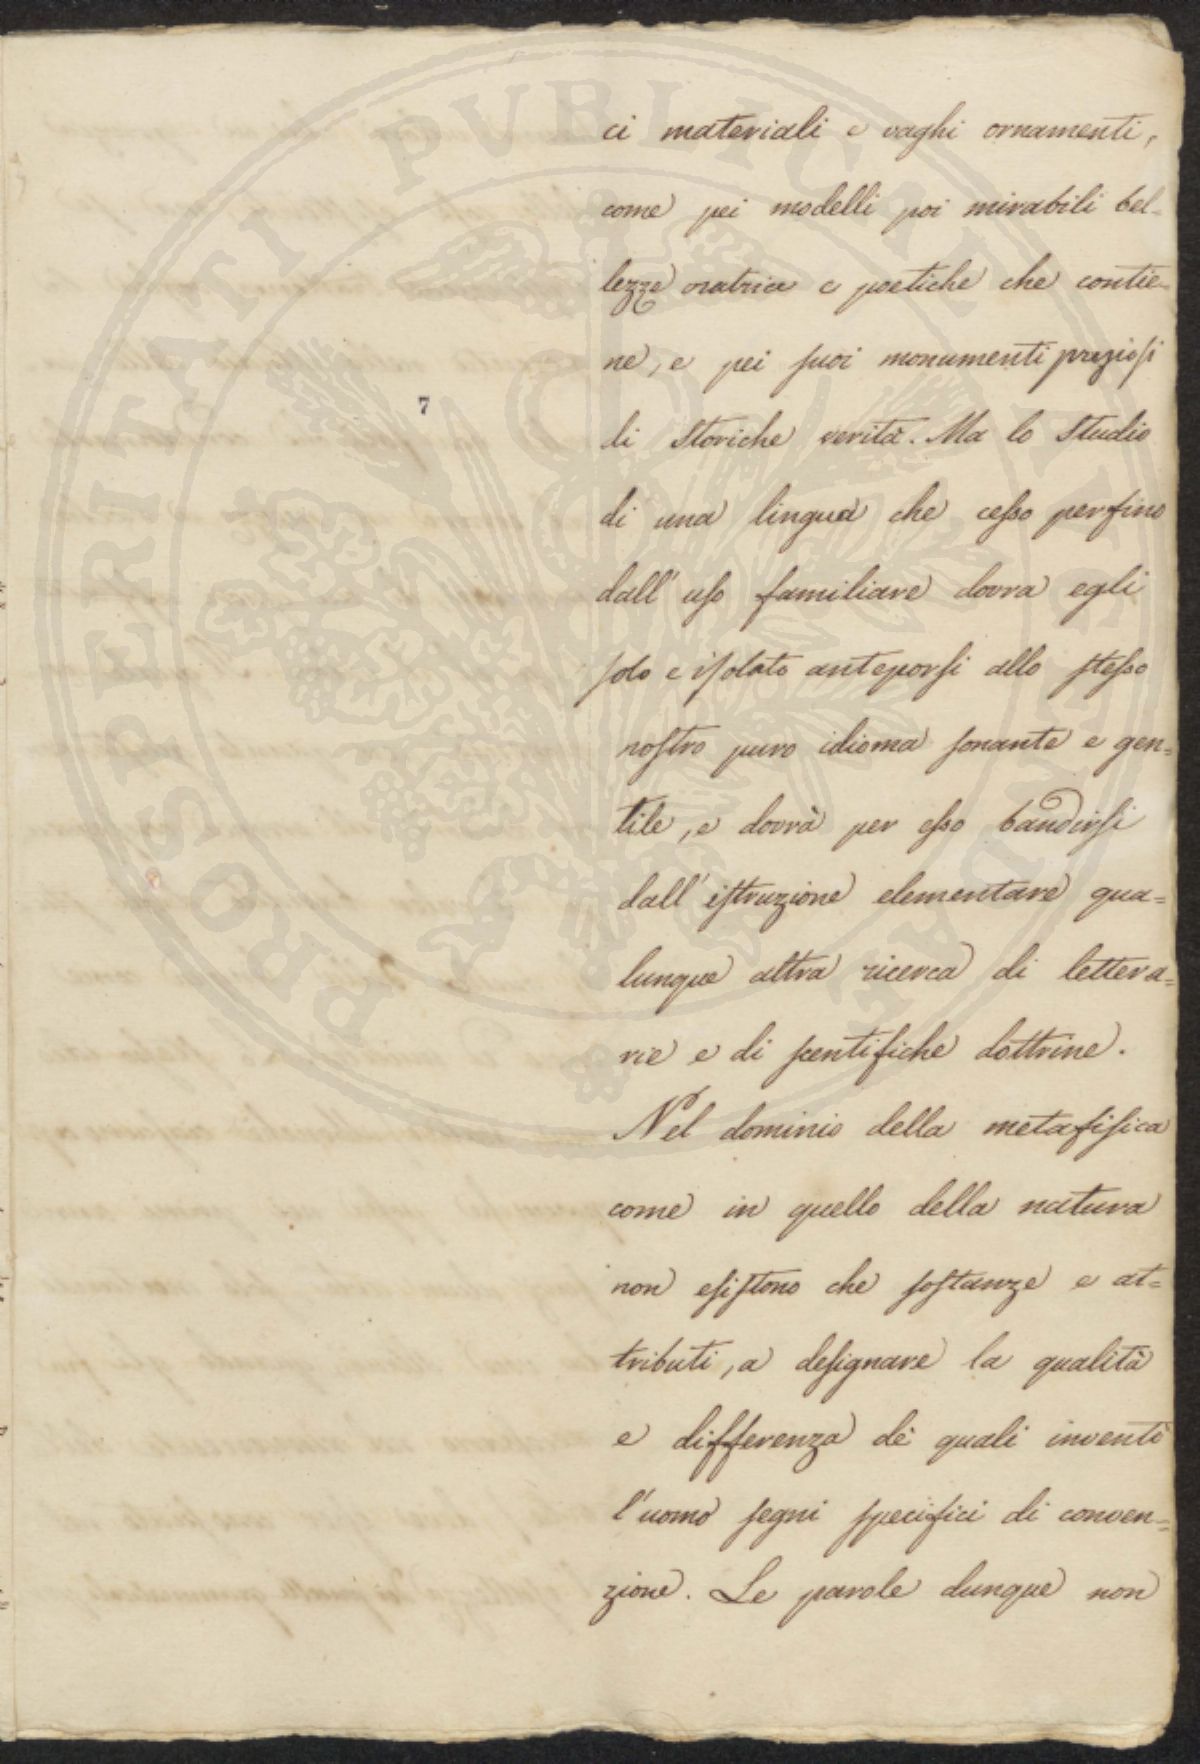 PROSPERITATI PUBLICAE AUGENDAE
7
ci materiali e vaghi ornamenti,
come pei modelli poi mirabili bel-
lezze oratrice e poetiche che contie-
ne, e pei suoi monumenti preziosi
di storiche verità. Ma lo studio
di una lingua che cesso perfino
dall' uso familiare dovra egli
solo e isolato anteporsi allo stesso
nostro puro idioma sonante e gen=
tile, e dovrà per esso bandirsi
dall' istruzione elementare qua=
lunque altra ricerca di lettera=
rie e di scentifiche dottrine.
Nel dominio della metafisica
come in quello della natura
non esistono che sostanze e at=
tributi, a designare la qualità
e differenza de' quali inventò
l'uomo segni specifici di conven=
zione. Le parole dunque non